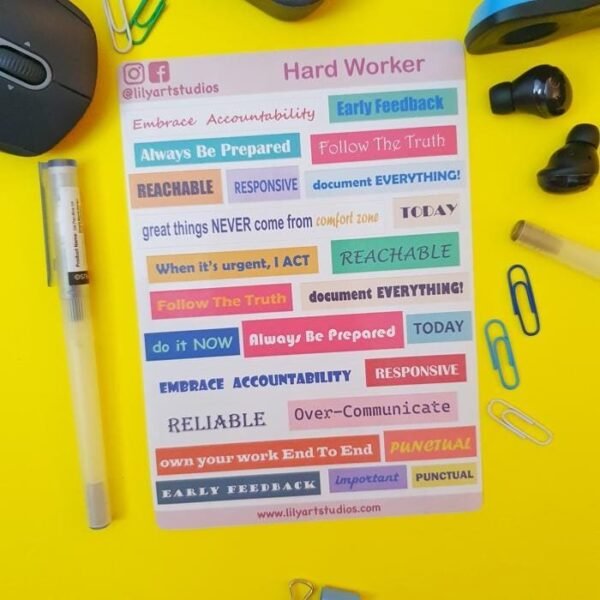 Hard Worker
@lilyartstudios
Embrace Accountability
Early Feedback
Always Be Prepared
Follow The Truth
REACHABLE
RESPONSIVE
document EVERYTHING!
great things NEVER come from comfort zone
TODAY
When it's urgent, I ACT
REACHABLE
Follow The Truth
document EVERYTHING!
do it NOW
Always Be Prepared
TODAY
EMBRACE ACCOUNTABILITY
RESPONSIVE
RELIABLE
Over-Communicate
own your work End To End
PUNCTUAL
EARLY FEEDBACK
important
PUNCTUAL
www.lilyartstudios.com